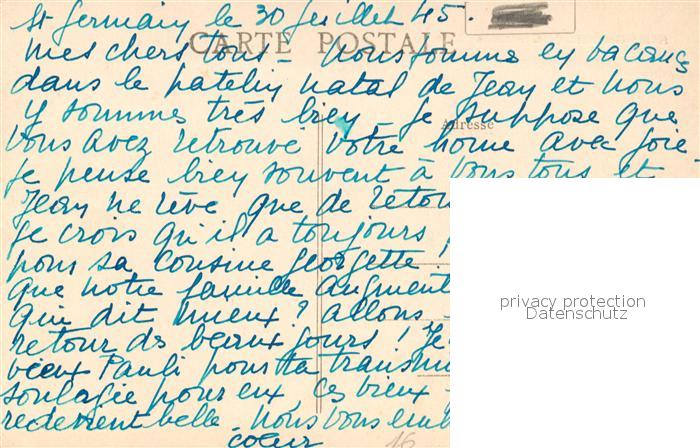 St Germain le 30 Juillet 45.
CARTE POSTALE
Mes chers tous - Nous sommes en vacances
dans le patelin natal de Jean et nous
y sommes très bien. Je suppose que
Adresse
vous avez retrouvé votre home avec joie.
Je pense bien souvent à vous tous et
Jean ne rêve que de retou
Je crois qu'il a toujours
pour sa cousine Georgette.
que notre famille augment
qui dit mieux? allons
retour de beaux jours! Je
vieux Pauli pour ta transm
soulagie pour eux, ces vieux
redevient belle - Nous vous emb
coeur
16
privacy protection
Datenschutz